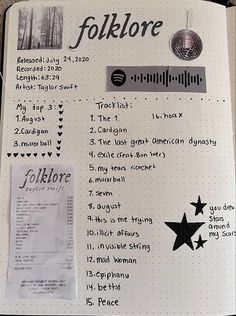 folklore
Released: July 24, 2020
Recorded: 2020
Length: 63:29
Artist: Taylor Swift
My top 3:
1. August
2. Cardigan
3. mirrorball
Tracklist:
1. The 1
2. Cardigan
3. The last great american dynasty
4. exile (feat. Bon Iver)
5. my tears ricochet
6. mirrorball
7. seven
8. august
9. this is me trying
10. illicit affairs
11. invisible string
12. mad woman
13. epiphany
14. betty
15. Peace
16. hoax
you drew
stars
around
my scars
folklore
taylor swift